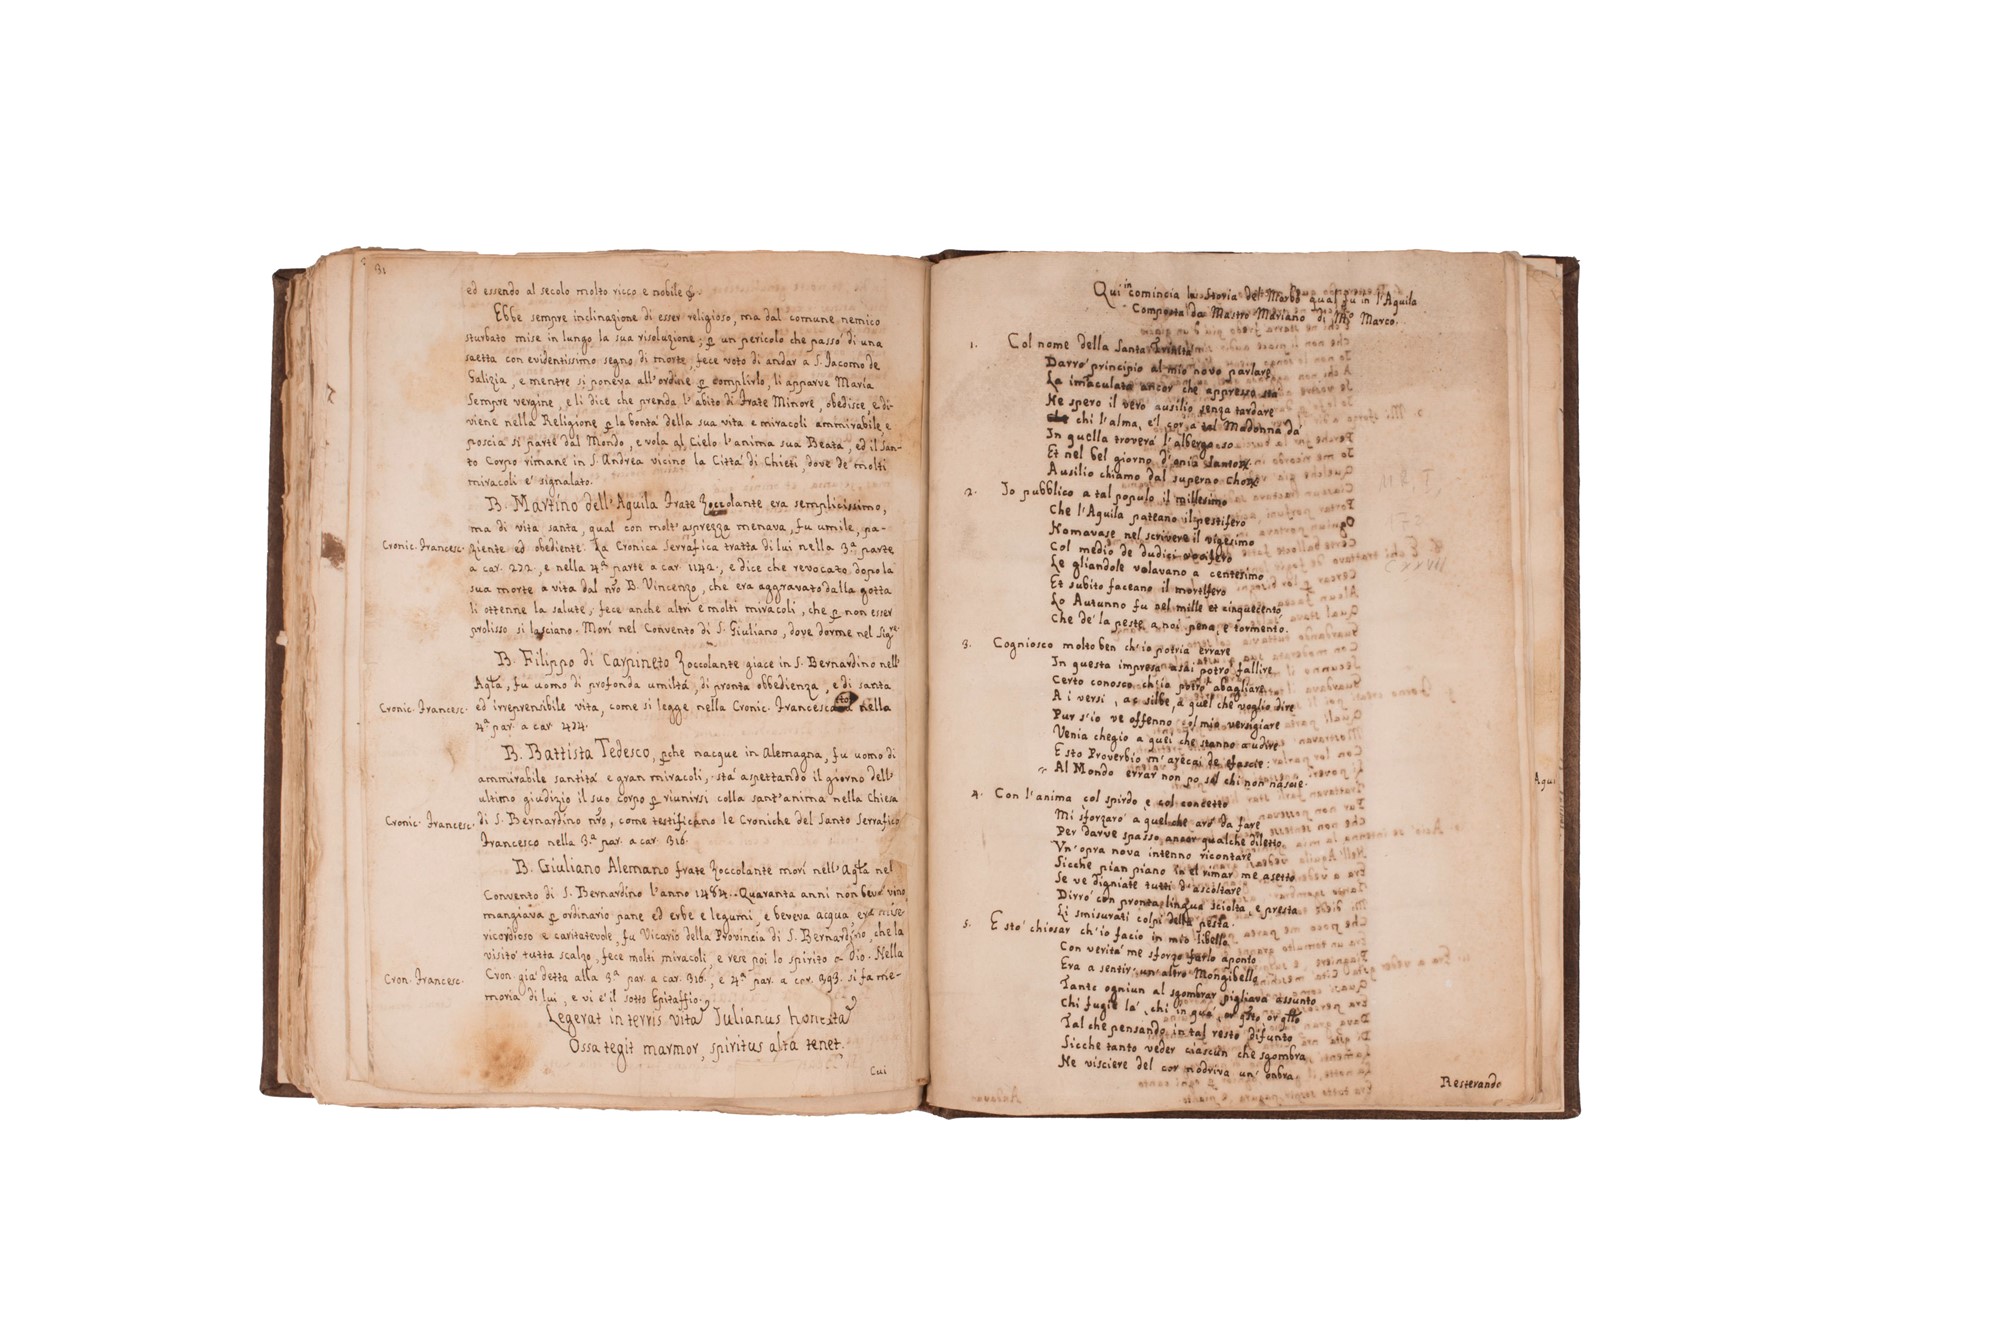 31
ed essendo al secolo molto ricco e nobile
Ebbe sempre inclinazione di esser religioso, ma dal comune nemico
sturbato mise in lungo la sua risoluzione; p un pericolo che passò di una
saetta con evidentissimo segno di morte, fece voto di andar a S. Iacomo de
Galizia, e mentre si poneva all'ordine p complirlo, li apparve Maria
sempre vergine, e li dice che prenda l'abito di frate Minore, obedisce, e di-
viene nella Religione p la bontà della sua vita e miracoli ammirabile, e
poscia si parte dal Mondo, e vola al Cielo l'anima sua Beata, ed il San-
to Corpo rimane in S. Andrea vicino la Città di Chieti, dove de molti
miracoli e' signalato.
B. Martino dell'Aquila frate Zoccolante era semplicissimo,
ma di vita santa, qual con molt'asprezza menava, fu umile, pa-
Cronic. Francesc. ziente ed obediente. La Cronica Serrafica tratta di lui nella 3.a parte
a car. 272., e nella 4.a parte a car. 1142., e dice che revocato dopo la
sua morte a vita dal nro B. Vincenzo, che era aggravato dalla gotta
li ottenne la salute, fece anche altri e molti miracoli, che p non esser
prolisso si lasciano. Morì nel Convento di S. Giuliano, dove dorme nel Sigre.
B. Filippo di Carpineto Zoccolante giace in S. Bernardino nell'
Aqla, fu uomo di profonda umiltà, di pronta obbedienza, e di santa
Cronic. Francesc. ed irreprensibile vita, come si legge nella Cronic. Francescana nella
4.a par. a car. 434.
B. Battista Tedesco, pche nacque in Alemagna, fu uomo di
ammirabile santità e gran miracoli, sta aspettando il giorno dell'
ultimo giudizio il suo corpo p riunirsi colla sant'anima nella Chiesa
Cronic. Francesc. di S. Bernardino nro, come testificano le Croniche del Santo Serrafico
Francesco nella 3.a par. a car. 316.
B. Giuliano Alemano frate Zoccolante morì nell'Aqla nel
Convento di S. Bernardino l'anno 1484. Quaranta anni non bevè vino,
mangiava p ordinario pane ed erbe e legumi, e beveva acqua, era mise-
ricordioso e caritatevole, fu Vicario della Provincia di S. Bernardino, che la
visitò tutta scalzo, fece molti miracoli, e rese poi lo spirito a Dio. Nella
Cron. Francesc. Cron. già detta alla 3.a par. a car. 316., e 4.a par. a car. 393. si fa me-
moria di lui, e vi e'il sotto Epitaffio.
Legerat in terris vita Julianus honesta
Ossa tegit marmor, spiritus alta tenet.
Cui
Qui incomincia la Storia del Morbo qual fu in l'Aquila
Composta da Mastro Mariano di Mo Marco.
1. Col nome della Santa Trinità
Darrò principio al mio novo parlare
La imaculata ancor che appresso stà
Ne spero il vero ausilio senza tardare
chi l'alma, e'l cor a tal Madonna dà
In quella troverà l'albergo
Et nel bel giorno d'
Ausilio chiamo dal superno Choro
2. Io pubblico a tal populo il millesimo
Che l'Aquila pateano il pestifero
Nomavase nel scrivere il vigesimo
Col medio de dudici
Le gliandole volavano a centesimo
Et subito faceano il mortifero
Lo Autunno fu nel mille et cinquecento
Che de' la peste a noi pena, e tormento.
3. Cogniosco molto ben ch'io potria errare
In questa impresa asai potrò fallire
Certo conosco ch'ia potrò abagliare
A i versi, ac silbe, a quel che voglio dire
Pur s'io ve offenno col mio versigiare
Venia chegio a quei che stanno a udire
E sto Proverbio m'arecai de
Al Mondo errar non po sol chi non nascie.
4. Con l'anima col spirdo e col concetto
Mi sforzarò a quel che arò da fare
Per darve spasso ancor qualche diletto
Un'opra nova intenno ricontare
Sicche pian piano in el rimar me asetto
Se ve digniate tutti d'ascoltare
Dirrò con pronta lingua sciolta, e presta
Li smisurati colpi della pesta.
5. E stò chiosar ch'io facio in mio libello
Con verità me sforzo farlo aponto
Era a sentir un'altro Mongibello
Tanto ogniun al sgombrar pigliava assunto
Chi fugie là, chi in quà,
Tal che pensando in tal resto difunto
Sicche tanto veder ciascun che sgombra
Ne visciere del cor nodriva un'onbra.
Resterando